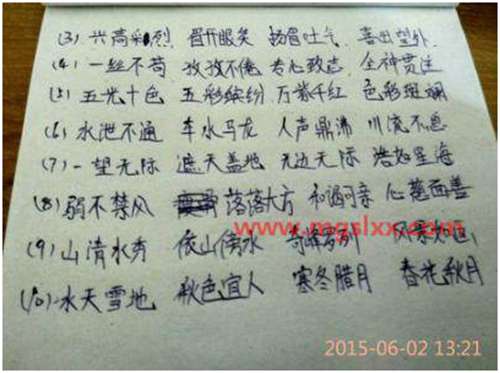 (3) 兴高彩烈 眉开眼笑 扬眉吐气 喜出望外
(4) 一丝不苟 孜孜不倦 专心致志 全神贯注
(5) 五光十色 五彩缤纷 万紫千红 色彩斑斓
(6) 水泄不通 车水马龙 人声鼎沸 川流不息
(7) 一望无际 遮天盖地 无边无际 浩如星海
(8) 弱不禁风 落落大方 和谒可亲 心慈面善
www.mgslxx.com
(9) 山清水秀 依山傍水
(10) 水天雪地 秋色宜人 寒冬腊月 春花秋月
2015-06-02 13:21